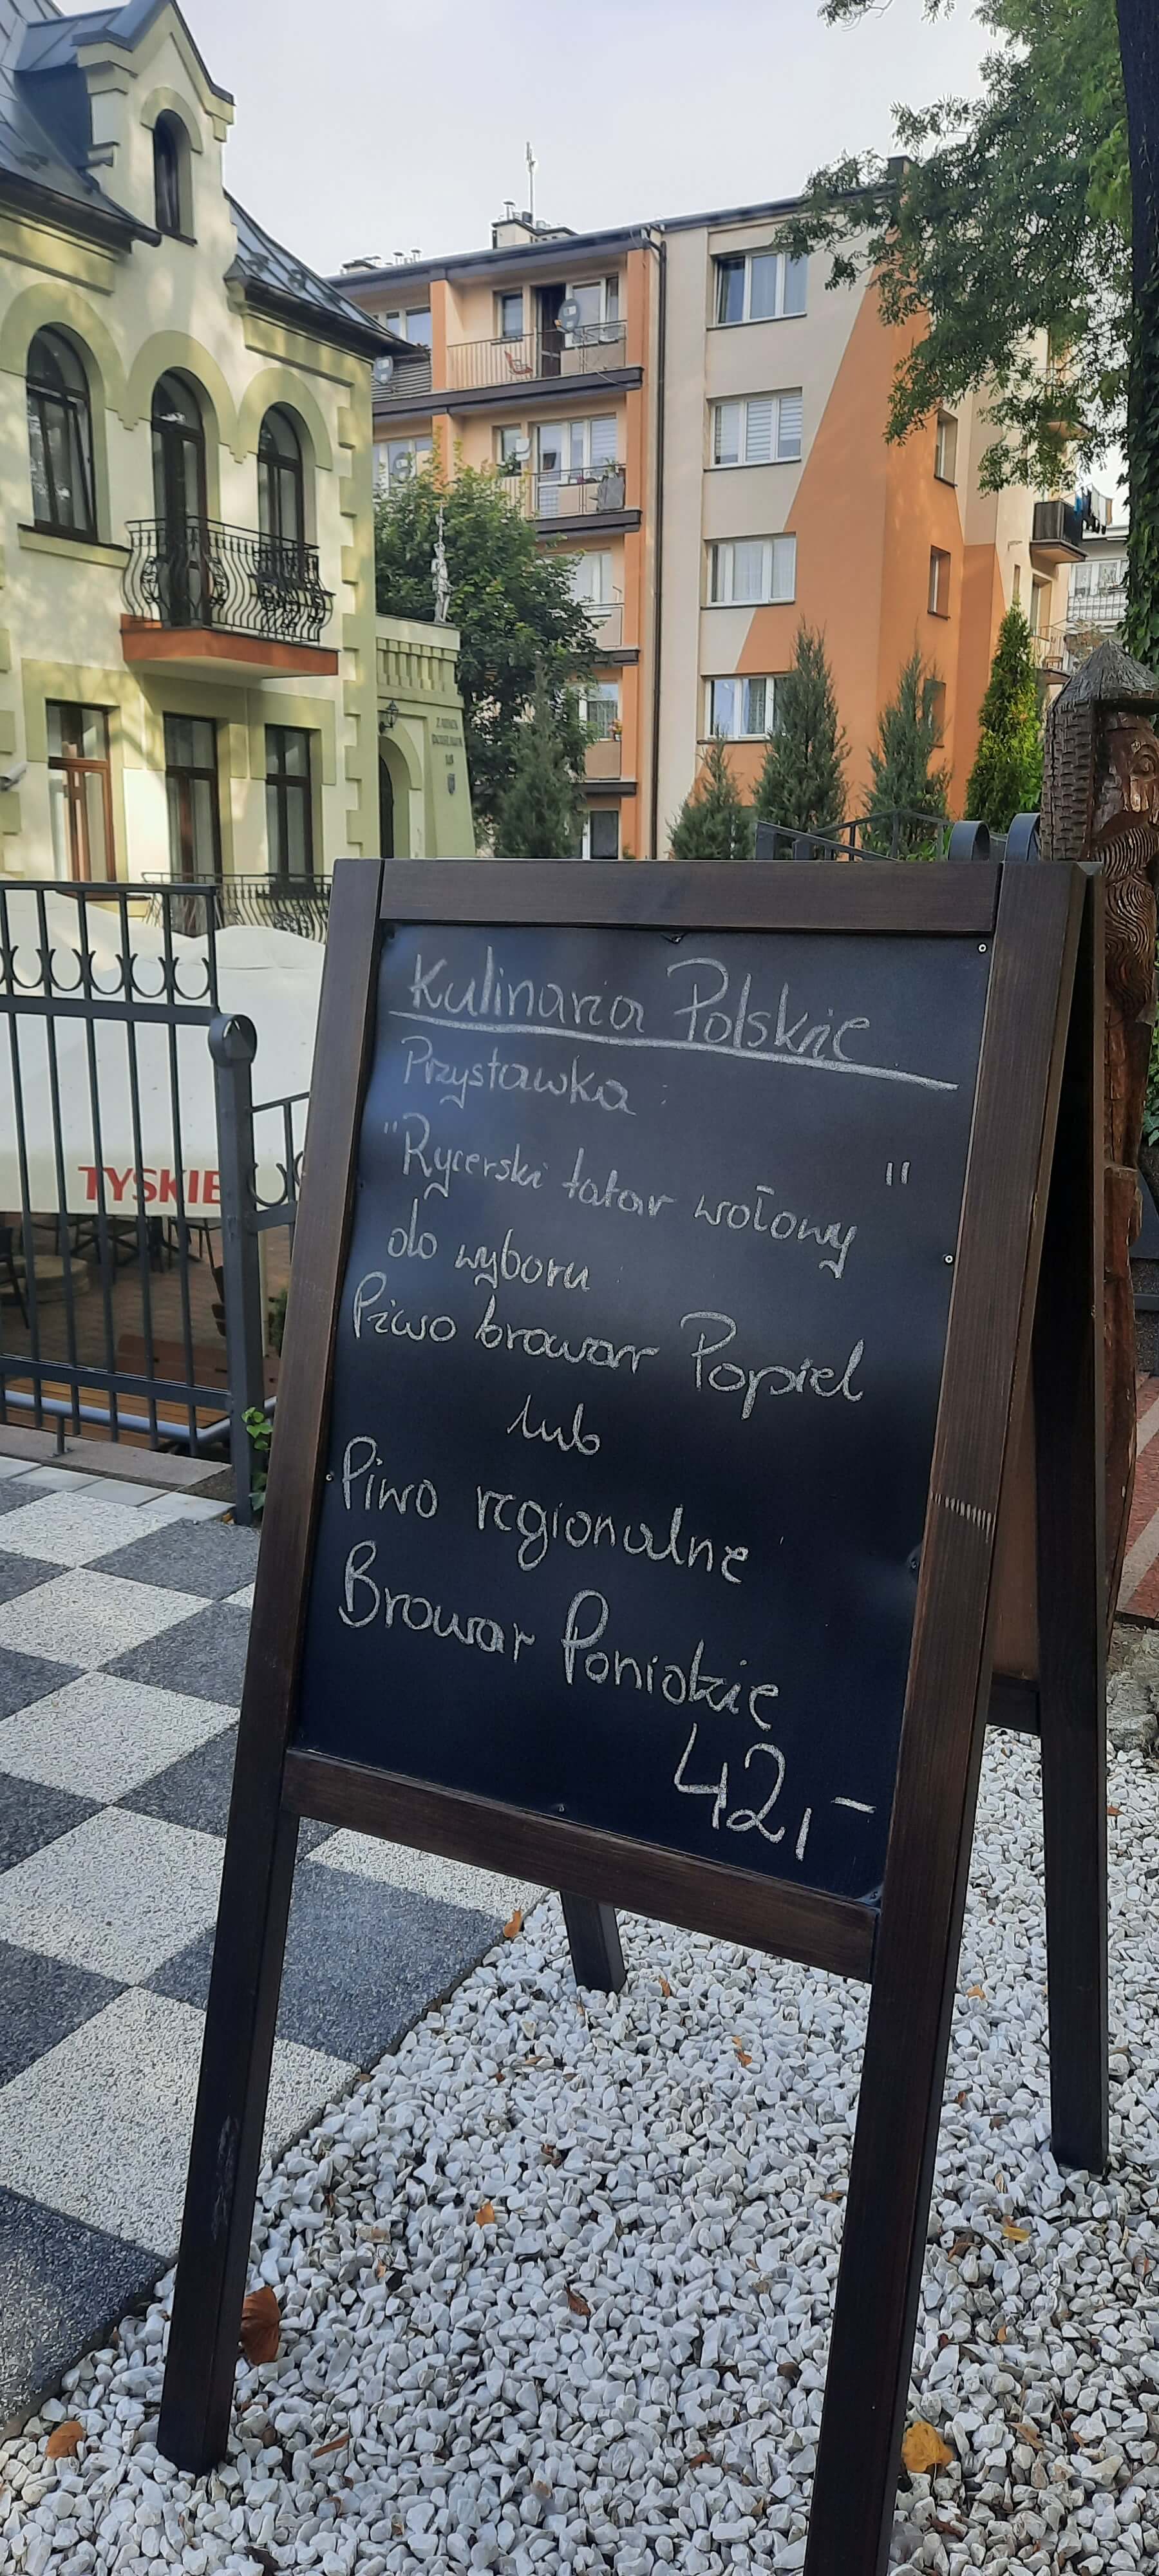 Kulinaria Polskie
Przystawka :
"Rycerski tatar wołowy"
do wyboru
Piwo browar Popiel
lub
Piwo regionalne
Browar Poniatzie
42,-
TYSKIE
18